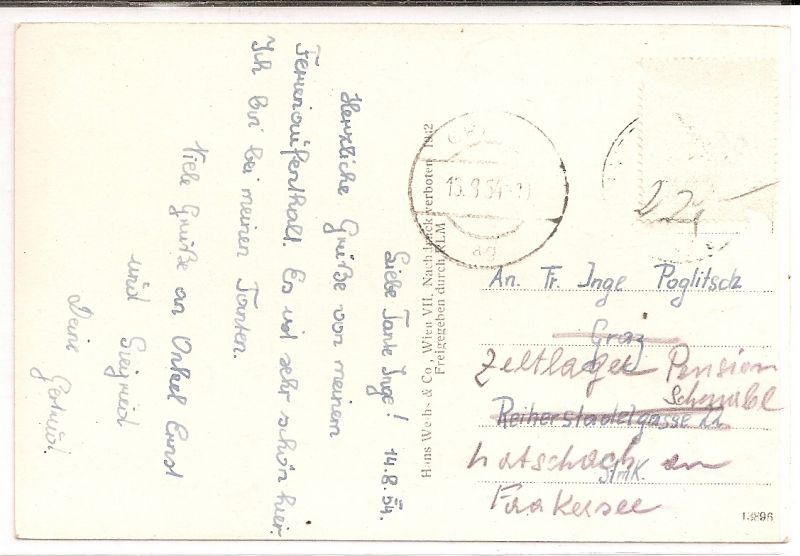 Liebe Tante Inge! 14.8.54.
Herzliche Grüße von meinem
Ferienaufenthalt. Es ist sehr schön hier.
Ich bin bei meinen Tanten.
Viele Grüße an Onkel Ernst
und Siegfried
Deine
Gertrud.
Hans Wechs & Co., Wien VII, Nachdruck verboten 1942
Freigegeben durch RLM
15.8.54
An Fr. Inge Poglitsch
Graz
Zeltlager Pension
Schnabl
Reiherstadelgasse 11
Latschach am
Stmk.
Faakersee
13896